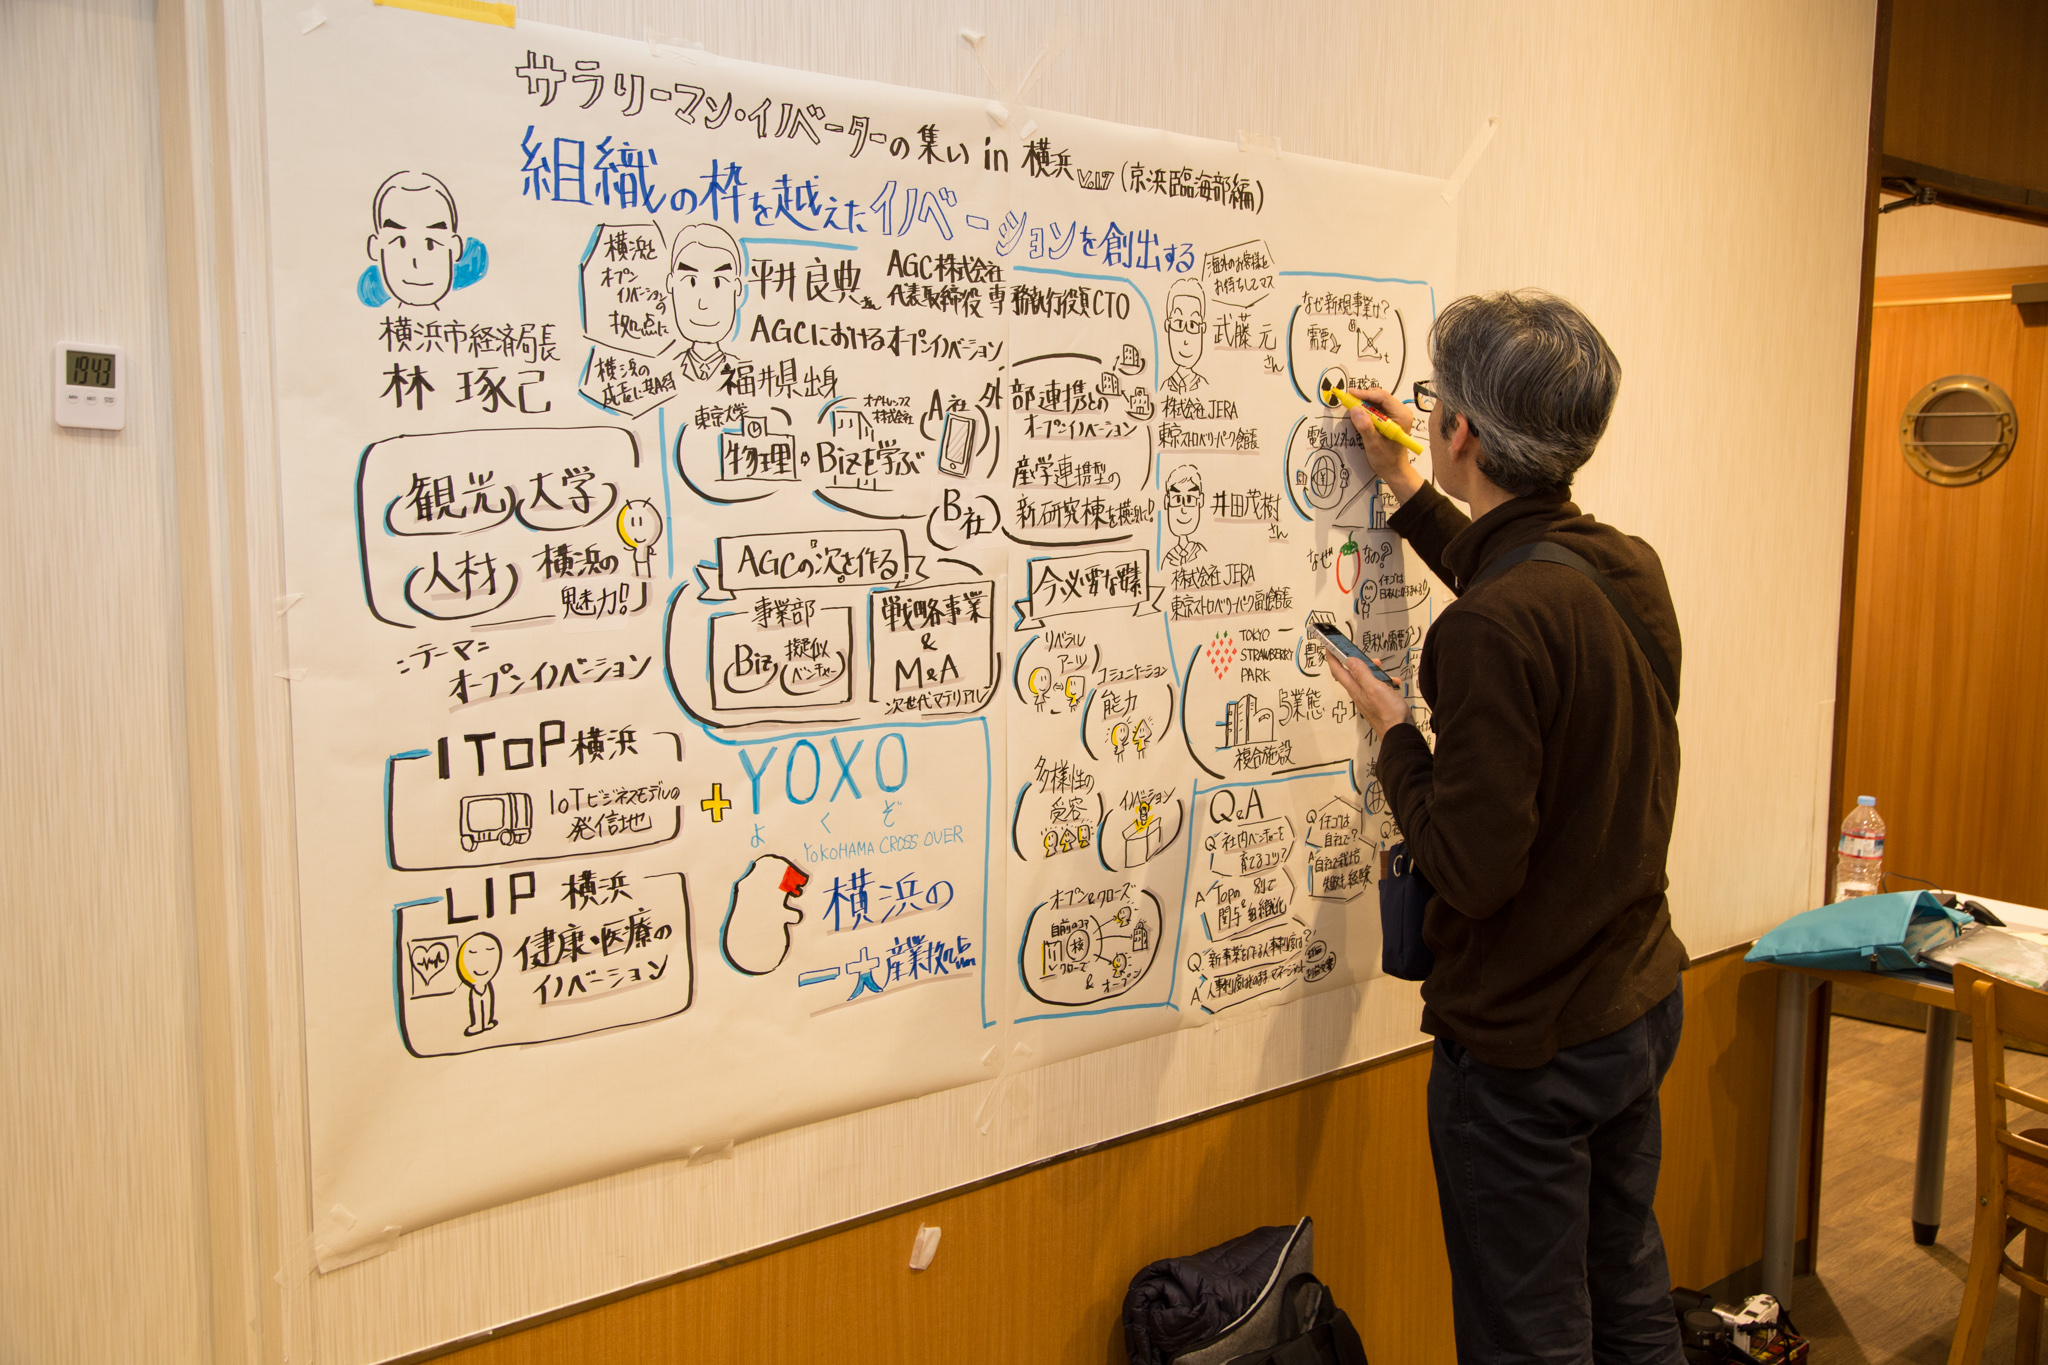 サラリーマン・イノベーターの集い in 横浜 Vol.7 (京浜臨海部編)
組織の枠を越えたイノベーションを創出する
19 43
横浜市経済局長
林 琢己
観光 大学
人材 横浜の
魅力!!
テーマ
オープンイノベーション
I TOP 横浜
IoTビジネスモデルの
発信地
LIP 横浜
健康・医療の
イノベーション
横浜を
オープン
イノベーションの
拠点に
横浜の
平井良典さん
AGC株式会社
代表取締役 専務執行役員CTO
AGCにおけるオープンイノベーション
福井県出身
東京大学
物理
オプトレックス
株式会社
Bizを学ぶ
A社
B社
外部連携との
オープンイノベーション
産学連携型の
新研究棟を横浜に!
AGCの"次"を作る!
事業部
Biz
擬似
ベンチャー
戦略事業
&
M&A
次世代マテリアル
今必要な要素
リベラル
アーツ
コミュニケーション
能力
多様性の
受容
イノベーション
オープン&クローズ
自前のコア
核
クローズ
&
オープン
+
YOXO
よ く ぞ
YOKOHAMA CROSS OVER
横浜の
一大産業拠点
海外のお客様を
お待ちしてマス
武藤 元
さん
株式会社JERA
東京ストロベリーパーク館長
井田茂樹
さん
株式会社JERA
東京ストロベリーパーク副館長
TOKYO
STRAWBERRY
PARK
5業態
複合施設
なぜ新規事業か?
需要
t
電気以外の
なぜ
なの?
イチゴは
農家
Q&A
Q 社内ベンチャーを
育てるコツ?
A TOPの
関与
&
別で
組織化
Q イチゴは
自社で?
A 自社で栽培
失敗も経験
Q 新事業を作る人事制度は?